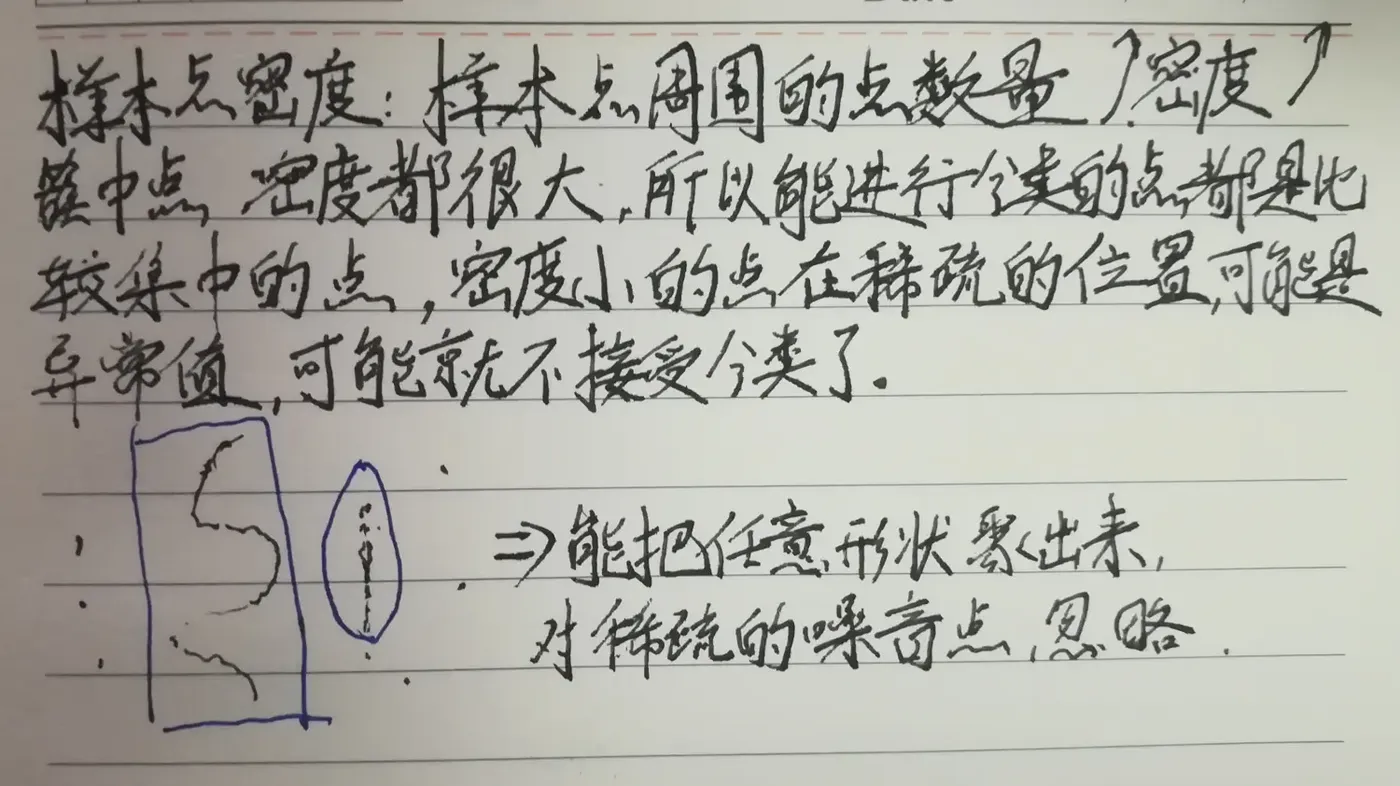 样本点密度：样本点周围的点数量↑密度↑
簇中点,密度都很大,所以能进行分类的点,都是比
较集中的点,密度小的点在稀疏的位置,可能是
异常值,可能就不接受分类了.
⇒能把任意形状聚出来,
对稀疏的噪音点,忽略.